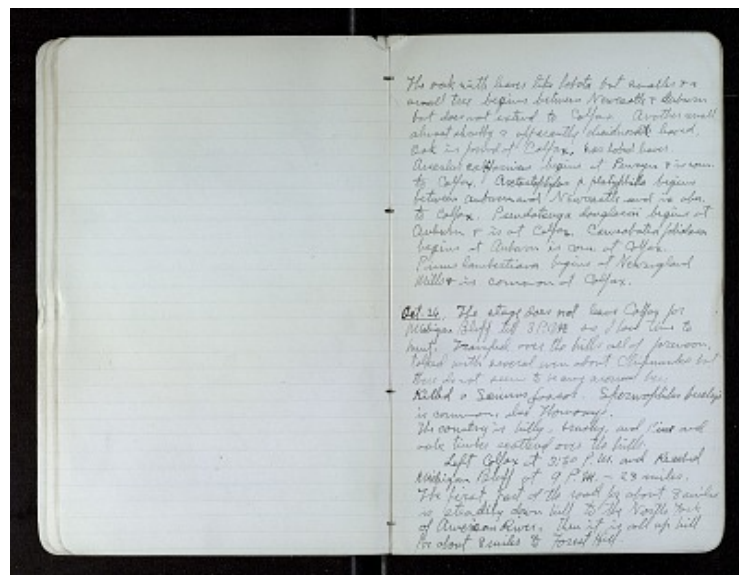 The oak with leaves like lobata but smaller & a
small tree begins between Newcastle & Auburn
but does not extend to Colfax. Another small
almost shrubby & apparently leaved,
oak is found at Colfax, has lobed leaves.
begins at & is com.
to Colfax. Arctostaphylos begins
between Auburn and Newcastle and is abn.
to Colfax. Pseudotsuga douglassii begins at
Auburn & is at Colfax.
begins at Auburn is com. at Colfax.
Pinus lambertiana begins at Newengland
Mills & is common at Colfax.
Oct. 26. The stage does not leave Colfax for
Michigan Bluff till 3 P.M. so I have time to
hunt. Tramped over the hills all of forenoon,
talked with several men about Chipmunks but
there do not seem to be any around here.
Killed a Sciurus fossor. Spermophilus beecheyi
is common, also Thomomys.
The country is hilly, brushy, and Pine and
oak timber scattered over the hills.
Left Colfax at 3:30 P.M. and Reached
Michigan Bluff at 9 P.M. - 28 miles.
The first part of the road for about 8 miles
is steadily down hill to the North Fork
of American River. Then it is all up hill
for about 8 miles to Forest Hill.